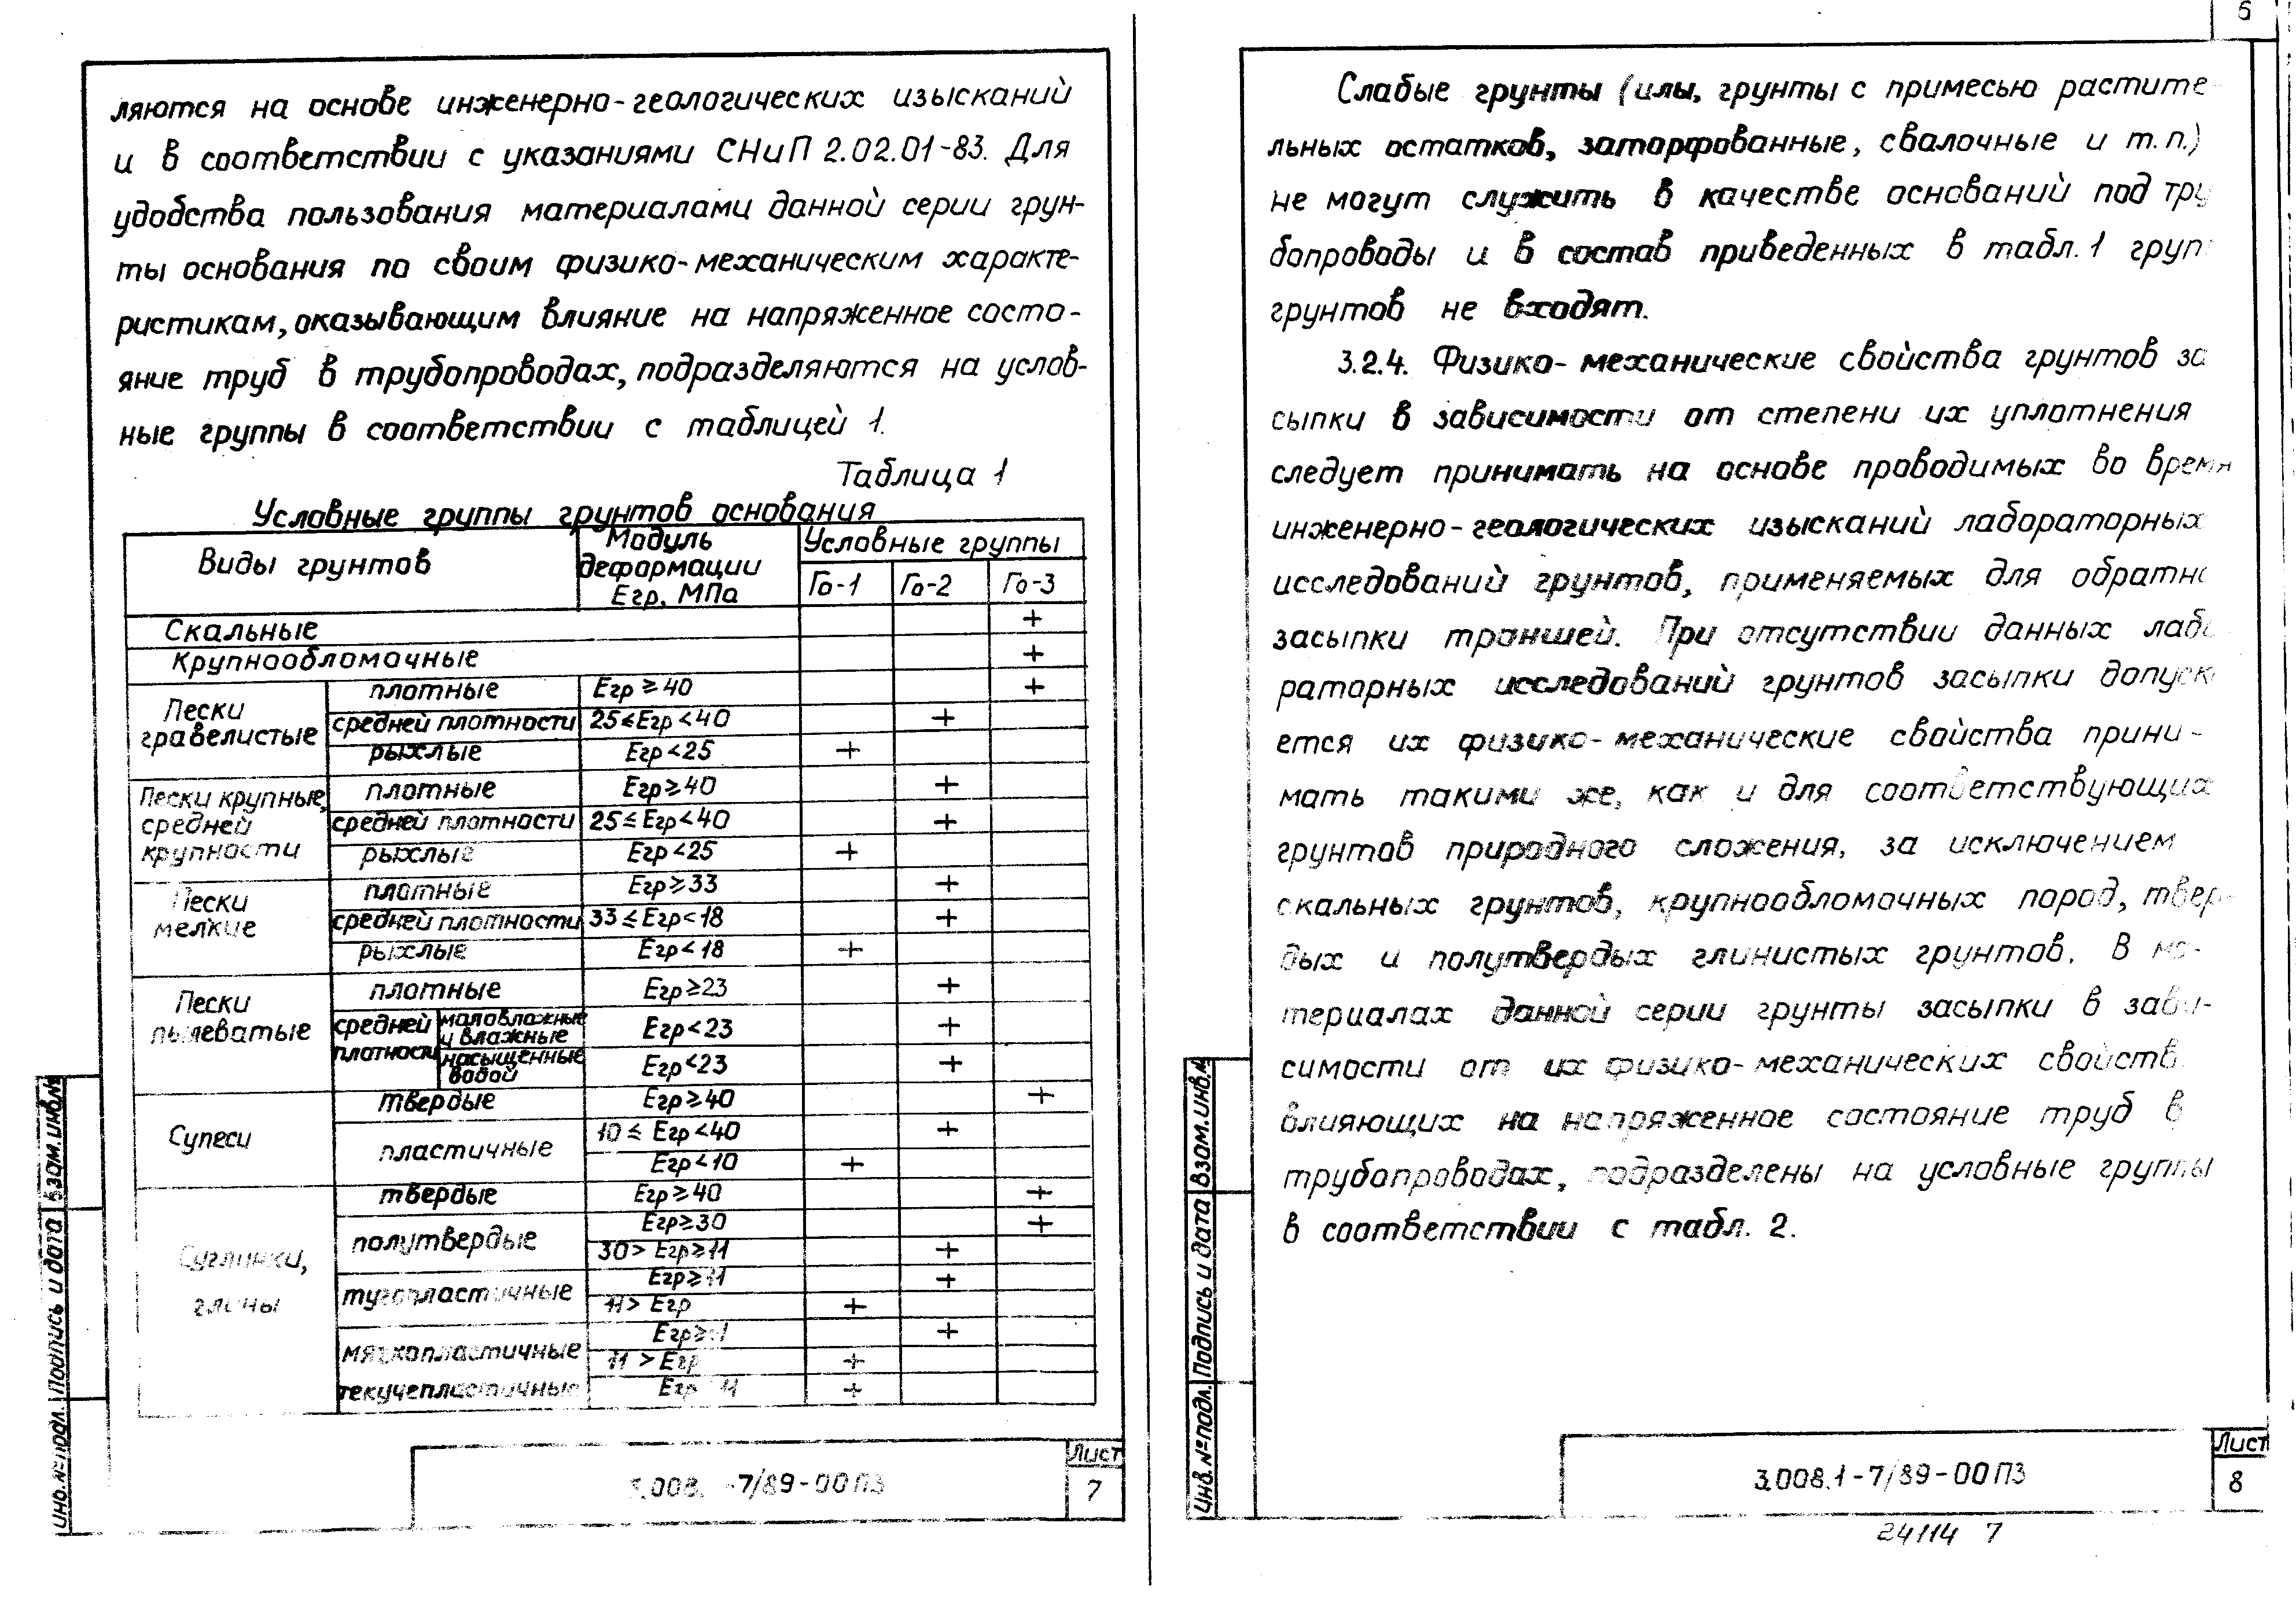 ляются на основе инженерно-геологических изысканий
и в соответствии с указаниями СНиП 2.02.01-83. Для
удобства пользования материалами данной серии грун-
ты основания по своим физико-механическим характе-
ристикам, оказывающим влияние на напряженное состо-
яние труб в трубопроводах, подразделяются на услов-
ные группы в соответствии с таблицей 1.
Таблица 1
Условные группы грунтов основания
Виды грунтов
Модуль
деформации
Егр, МПа
Условные группы
Го-1 Го-2 Го-3
Скальные +
Крупнообломочные +
Пески
гравелистые
плотные Егр ≥ 40 +
средней плотности 25≤Егр<40 +
рыхлые Егр<25 +
Пески крупные,
средней
крупности
плотные Егр≥40 +
средней плотности 25≤Егр<40 +
рыхлые Егр<25 +
Пески
мелкие
плотные Егр≥33 +
средней плотности 33≤Егр<18 +
рыхлые Егр<18 +
Пески
пылеватые
плотные Егр≥23 +
средней
плотности
маловлажные
и влажные
Егр<23 +
насыщенные
водой
Егр<23 +
Супеси
твердые Егр≥40 +
пластичные
10≤ Егр<40 +
Егр<10 +
Суглинки,
глины
твердые Егр≥40 +
полутвердые
Егр≥30 +
30> Егр≥11 +
тугопластичные
Егр≥11 +
11> Егр +
мягкопластичные
Егр≥ +
11 > Егр +
текучепластичные Егр 11 +
Инв.№подл. Подпись и дата Взам.инв.№
3.008. -7/89-00ПЗ
Лист
7
6
Слабые грунты (илы, грунты с примесью растите-
льных остатков, заторфованные, свалочные и т.п.)
не могут служить в качестве оснований под тру
бопроводы и в состав приведенных в табл.1 груп
грунтов не входят.
3.2.4. Физико-механические свойства грунтов за
сыпки в зависимости от степени их уплотнения
следует принимать на основе проводимых во время
инженерно-геологических изысканий лабораторных
исследований грунтов, применяемых для обратно
засыпки траншей. При отсутствии данных лабо
раторных исследований грунтов засыпки допуск
ется их физико-механические свойства прини-
мать такими же, как и для соответствующих
грунтов природного сложения, за исключением
скальных грунтов, крупнообломочных пород, твер-
дых и полутвердых глинистых грунтов. В ма-
териалах данной серии грунты засыпки в зави-
симости от их физико-механических свойств
влияющих на напряженное состояние труб в
трубопроводах, подразделены на условные группы
в соответствии с табл. 2.
Инв.№подл. Подпись и дата Взам.инв.№
3.008.1-7/89-00ПЗ
Лист
8
24114 7